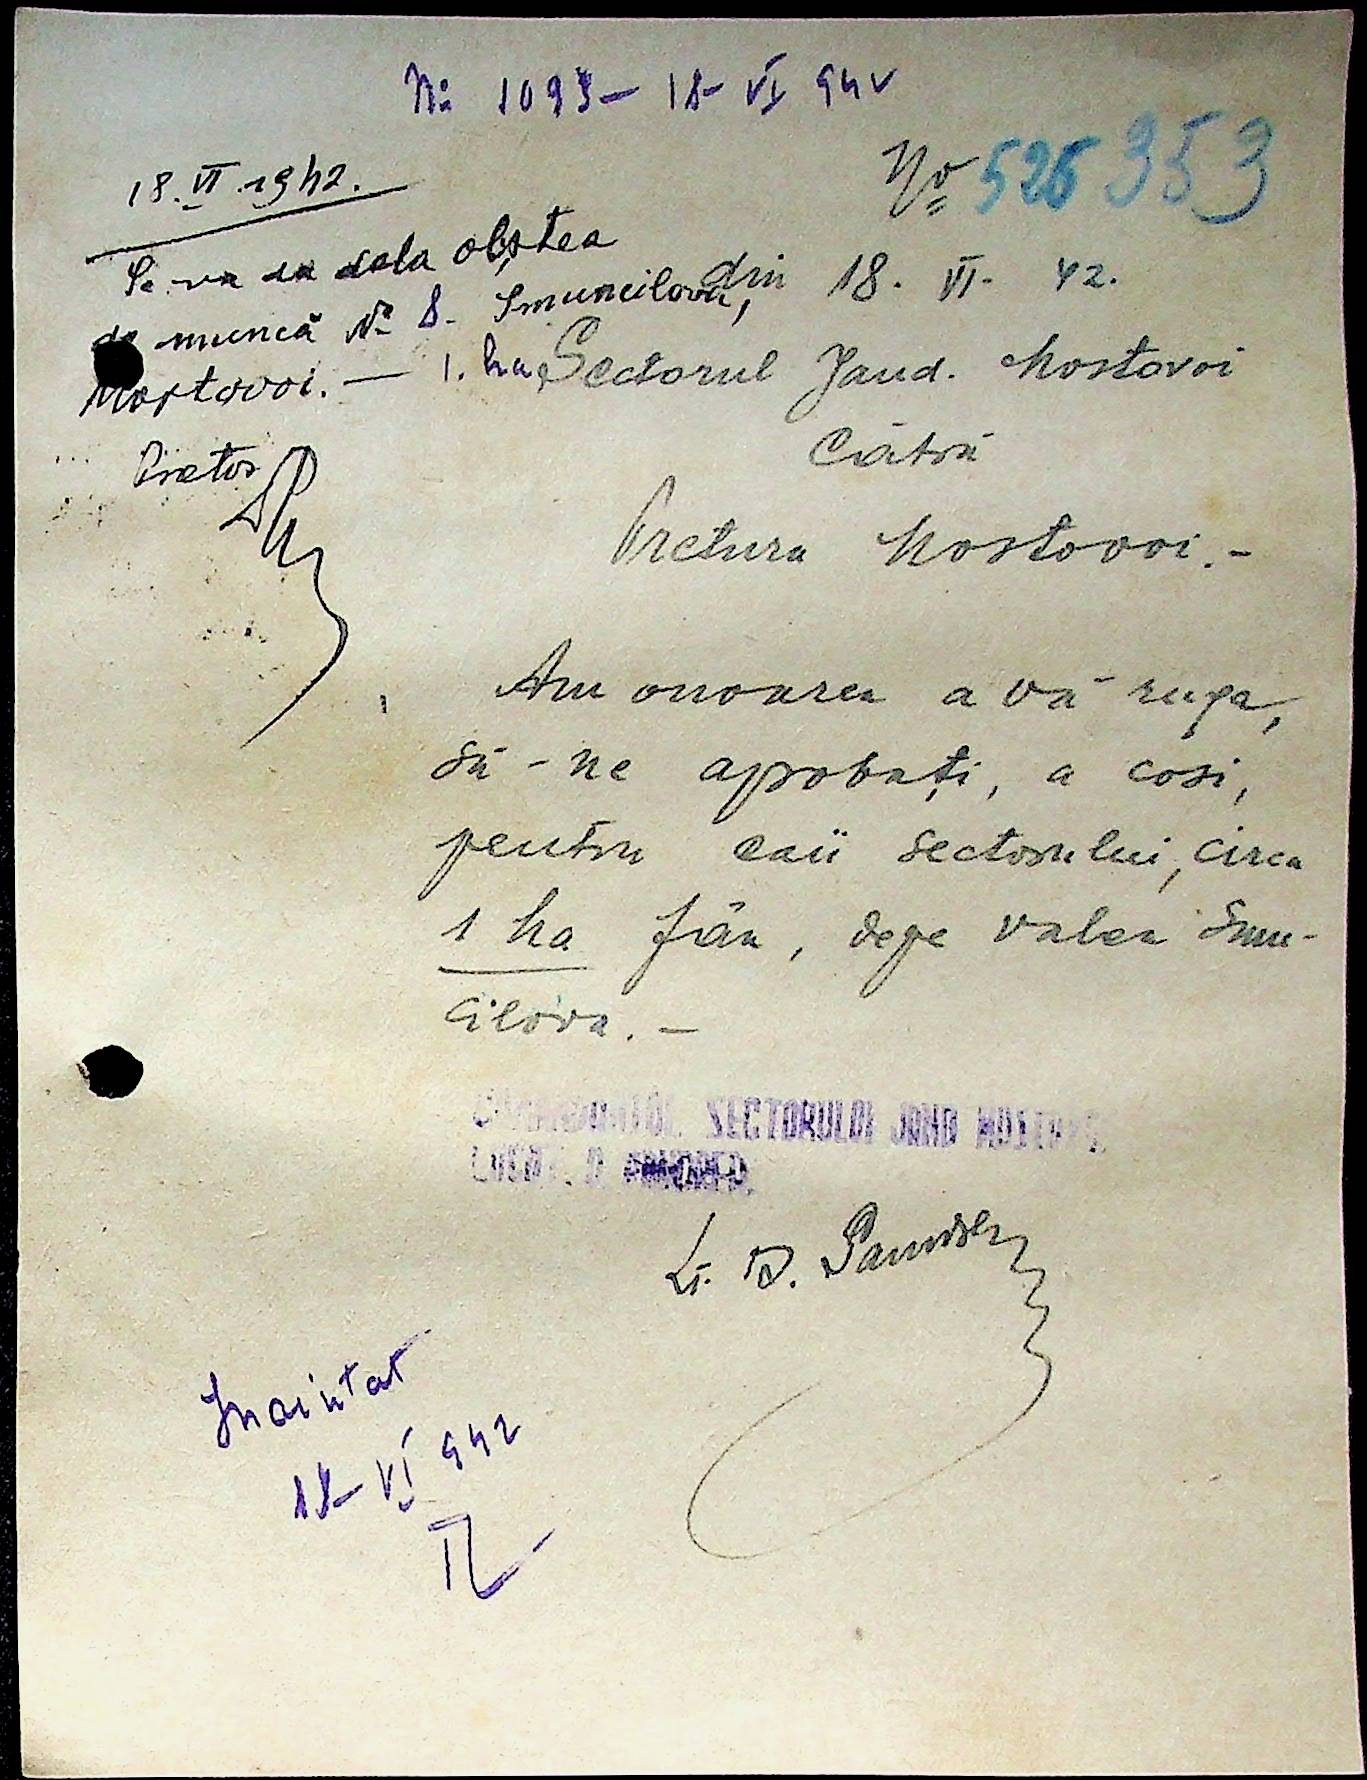 No 1093 – 18 – VI 942
No 526 353
18. VI. 1942.
Se va da dela obștea
de muncă No 8. Smuncilova,
Mostovoi. — 1. ha
Pretor
din 18. VI. 42.
Sectorul Jand. Mostovoi
Către
Pretura Mostovoi. –
Am onoarea a vă ruga,
să-ne aprobați, a cosi,
pentru caii sectorului, circa
1 ha fân, depe valea Smu-
cilova. –
SECTORULUI JAND MOSTOVOI
Lt. D.
Inaintat
18 – VI 942